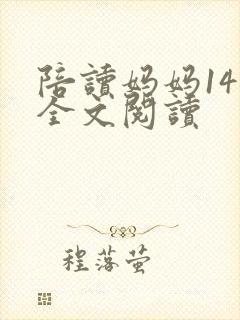 陪讀妈妈14
全文閱讀
程落萤